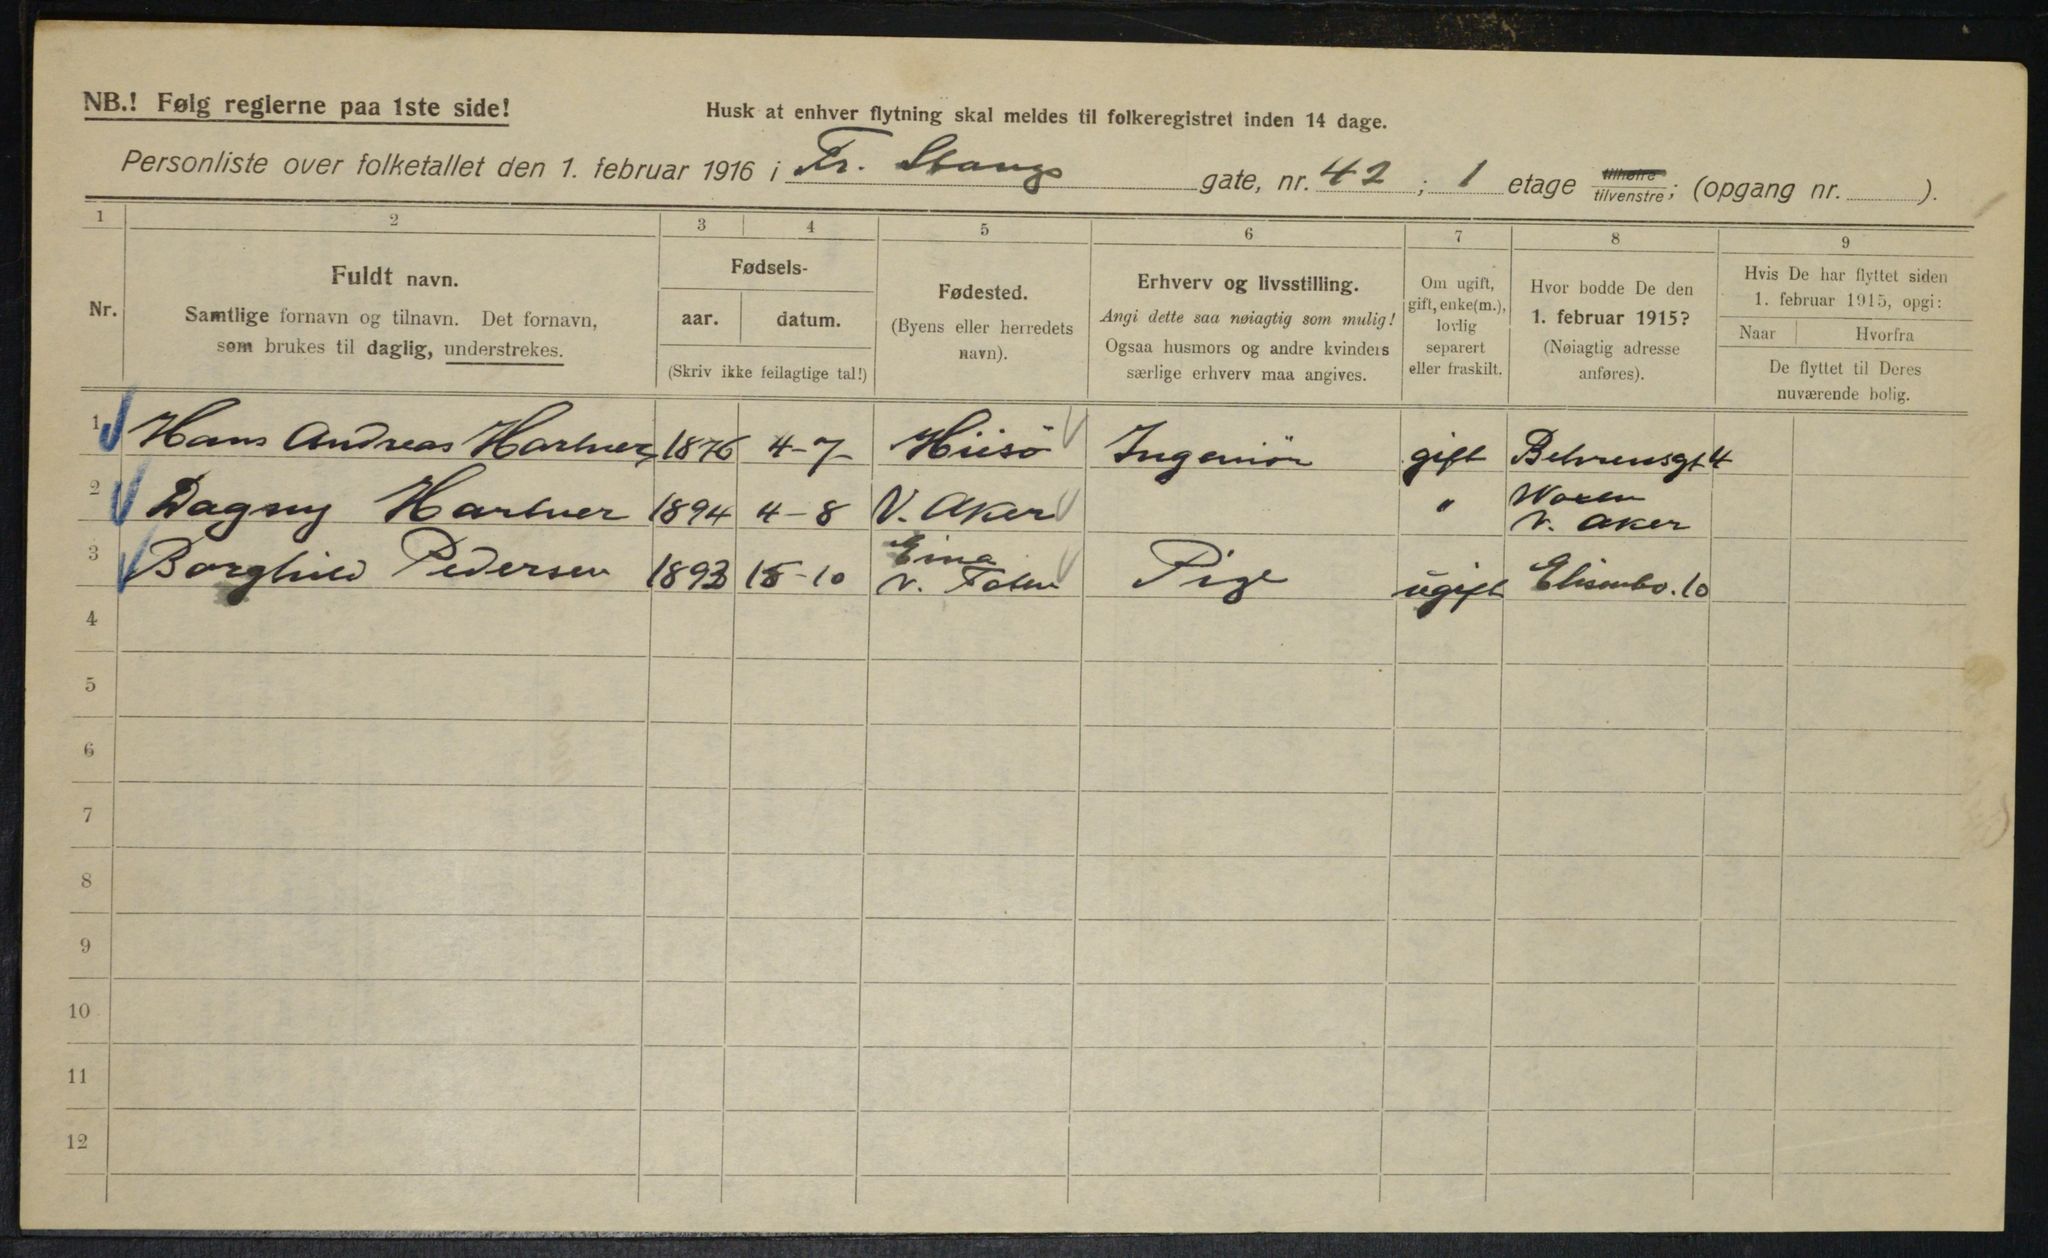 NB.! Følg reglerne paa 1ste side!
Husk at enhver flytning skal meldes til folkeregistret inden 14 dage.
Personliste over folketallet den 1. februar 1916 i Fr. Stangs gate, nr. 42; 1 etage tilhøire tilvenstre; (opgang nr. ).
1 2 3 4 5 6 7 8 9
Nr.
Fuldt navn.
Samtlige fornavn og tilnavn. Det fornavn,
som brukes til daglig, understrekes.
Fødsels-
aar. datum.
(Skriv ikke feilagtige tal!)
Fødested.
(Byens eller herredets
navn).
Erhverv og livsstilling.
Angi dette saa nøiagtig som mulig!
Ogsaa husmors og andre kvinders
særlige erhverv maa angives.
Om ugift,
gift, enke(m.),
lovlig
separert
eller fraskilt.
Hvor bodde De den
1. februar 1915?
(Nøiagtig adresse
anføres).
Hvis De har flyttet siden
1. februar 1915, opgi:
Naar Hvorfra
De flyttet til Deres
nuværende bolig.
1 Hans Andreas 1876 4-7- Hiisö Ingeniör gift Behrensgt 4
2 Dagny 1894 4-8 V. Aker " V. Aker
3 Borghild Pedersen 1893 15-10 Eina V. Toten Pige ugift Elisenbo. 10
4
5
6
7
8
9
10
11
12